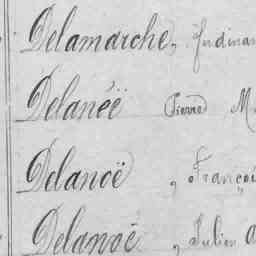 Delamarche, Ferdinan
Delanëë Pierre M
Delanoë , Françoi
Delanoë , Julien A